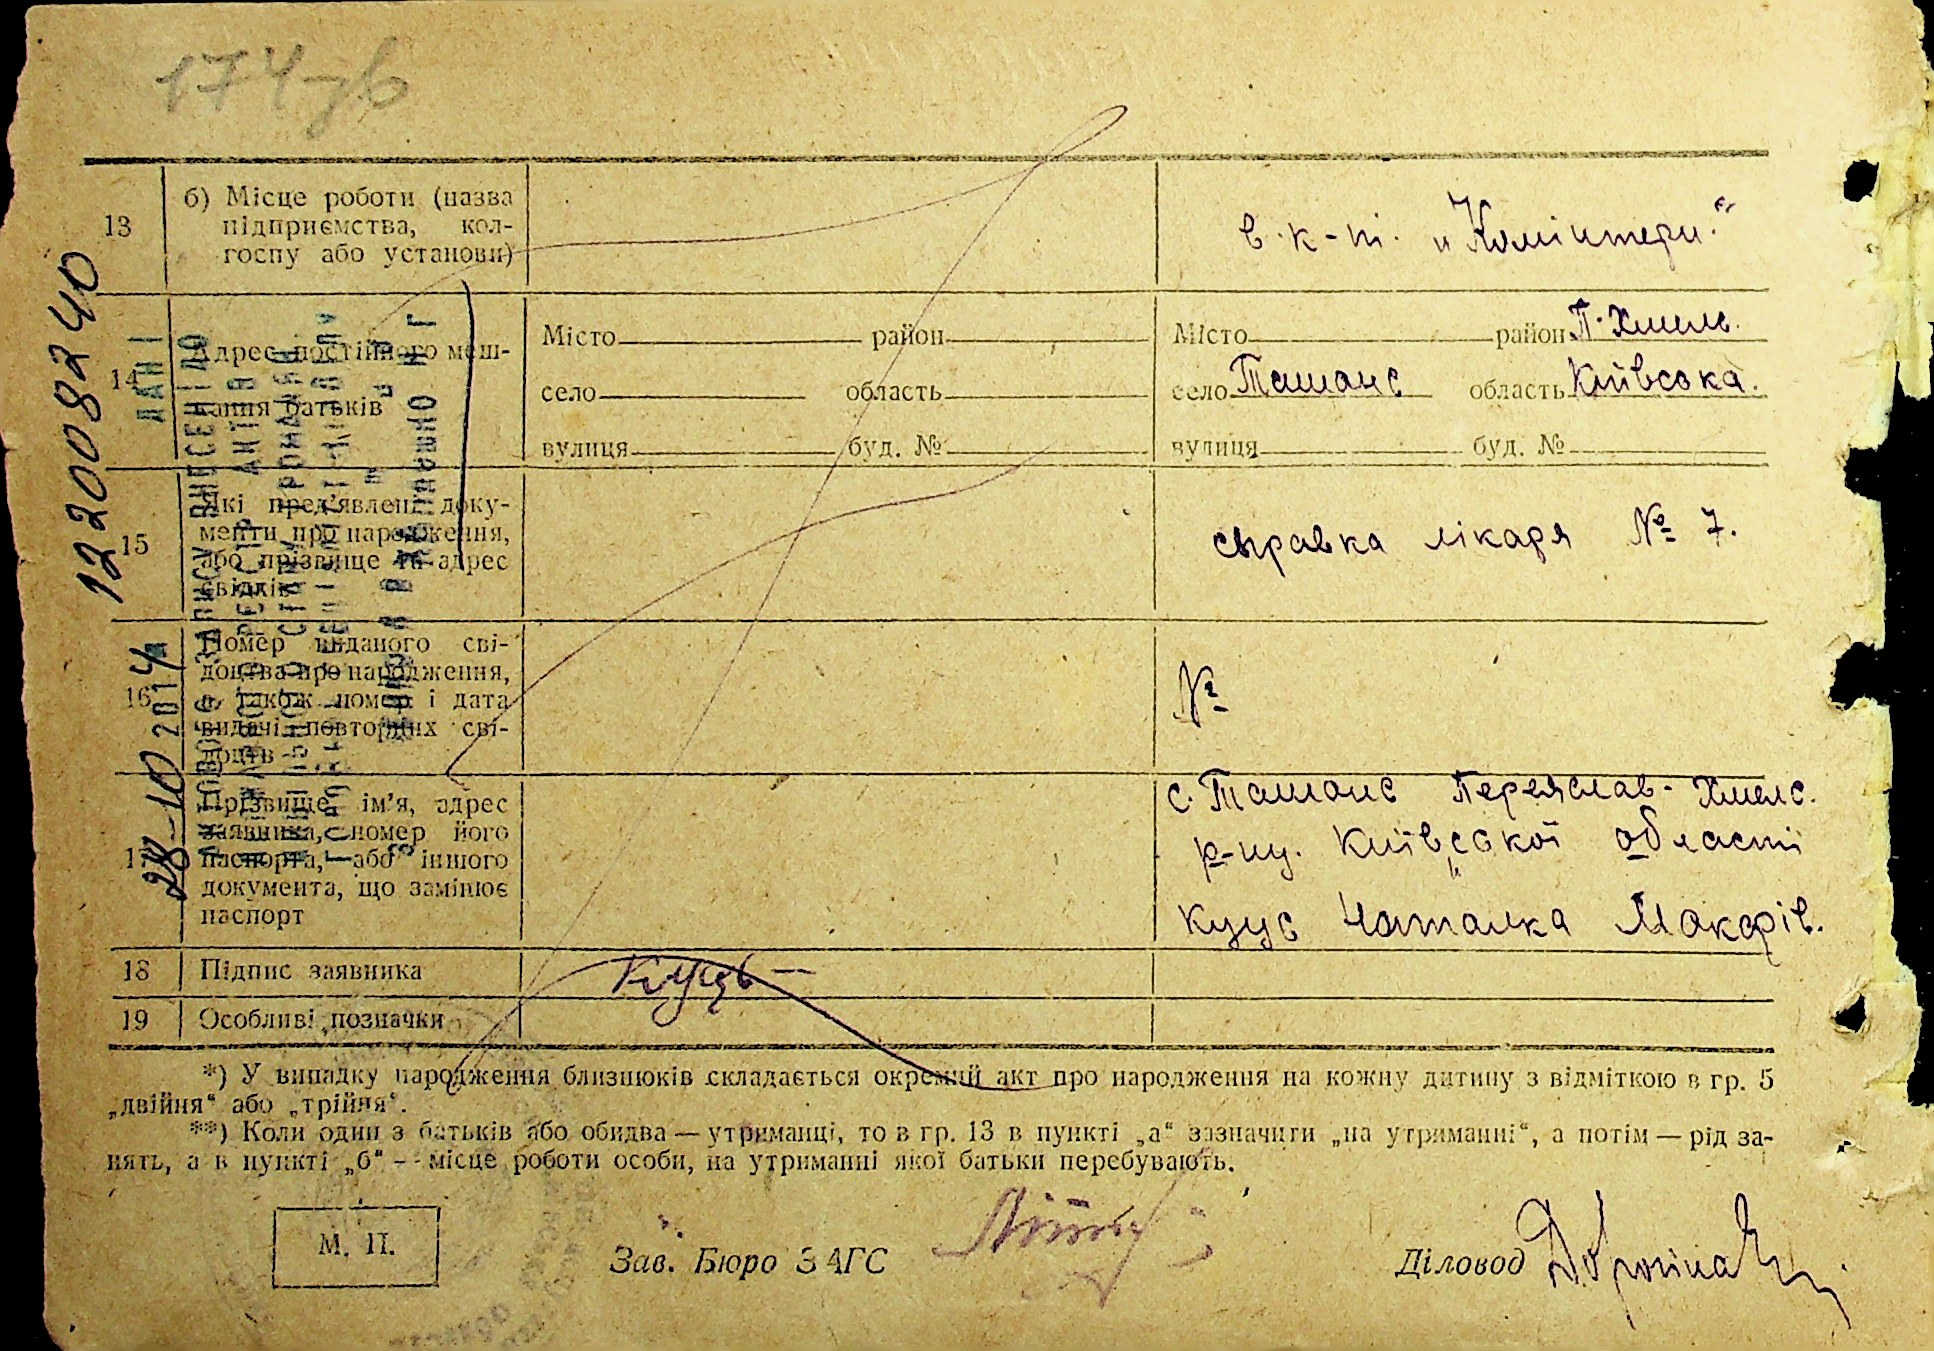 174 зв
13 б) Місце роботи (назва
підприємства, кол-
госпу або установи)
в. к-ті. „Комінтерн."
14 Адрес постійного меш-
кання батьків
Місто район Місто район П-Хмель.
село область село Ташанс область Київська.
вулиця буд. № вулиця буд. №
15 Які пред'явлені доку-
менти про народження,
або прізвище та адрес
свідків
справка лікаря № 7.
16 Номер виданого сві-
доцтва про народження,
а також номер і дата
видачі повторних сві-
доцтв
№
17 Прізвище, ім'я, адрес
заявника, номер його
паспорта, або іншого
документа, що замінює
паспорт
с. Ташанс Переяслав-Хмелс.
р-ну. Київської області
Куус Наталка Макарів.
18 Підпис заявника Куць
19 Особливі позначки
*) У випадку народження близнюків складається окремий акт про народження на кожну дитину з відміткою в гр. 5
„двійня" або „трійня".
**) Коли один з батьків або обидва — утриманці, то в гр. 13 в пункті „а" зазначити „на утриманні", а потім — рід за-
нять, а в пункті „б" - - місце роботи особи, на утриманні якої батьки перебувають.
М. П.
Зав. Бюро ЗАГС
Діловод
122008240
28-10 2014